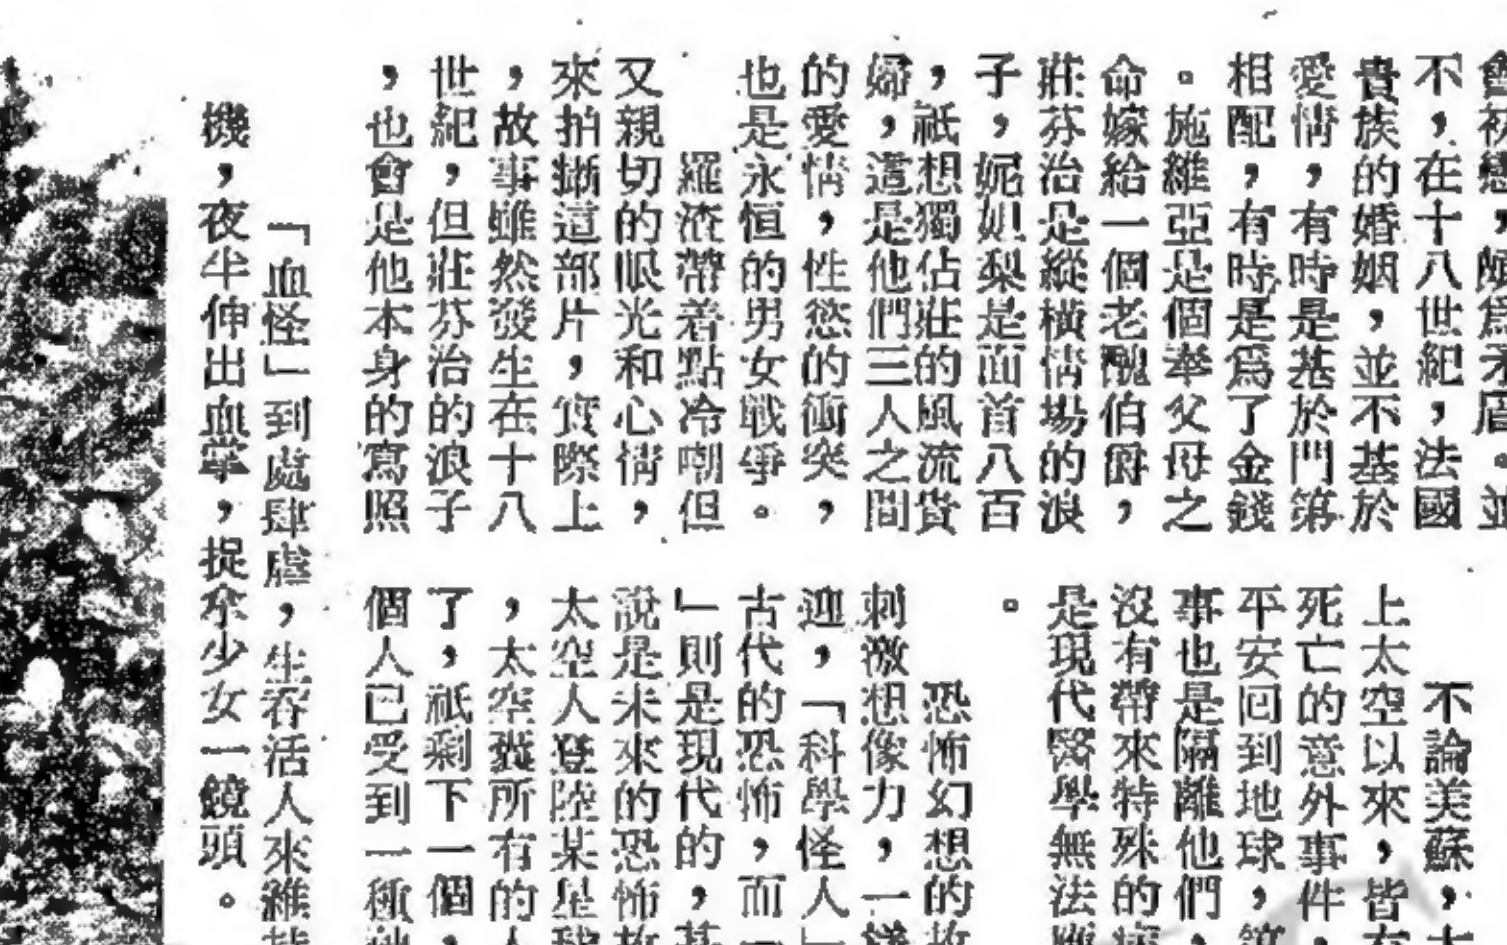 不，在十八世紀，法國
貴族的婚姻，並不基於
愛情，有時是基於門第
相配，有時是爲了金錢
。施維亞是個奉父母之
命嫁給一個老醜伯爵，
莊芬治是縱橫情場的浪
子，妮妲梨是面首八百
，祇想獨佔莊的風流貴
婦，這是他們三人之間
的愛情，性慾的衝突，
也是永恒的男女戰爭。
羅渣帶着點冷嘲但
又親切的眼光和心情，
來拍攝這部片，實際上
，故事雖然發生在十八
世紀，但莊芬治的浪子
，也會是他本身的寫照
不論美蘇，
上太空以來，皆
死亡的意外事件，
平安回到地球，
事也是隔離他們，
沒有帶來特殊的
是現代醫學無法
。
恐怖幻想的故
刺激想像力，一
迎，「科學怪人」
古代的恐怖，而
」則是現代的，
說是未來的恐怖故
太空人登陸某星球
，太空船所有的人
了，祇剩下一個，
個人已受到一種
「血怪」到處肆虐，生吞活人來維持
機，夜半伸出血掌，捉來少女一鏡頭。